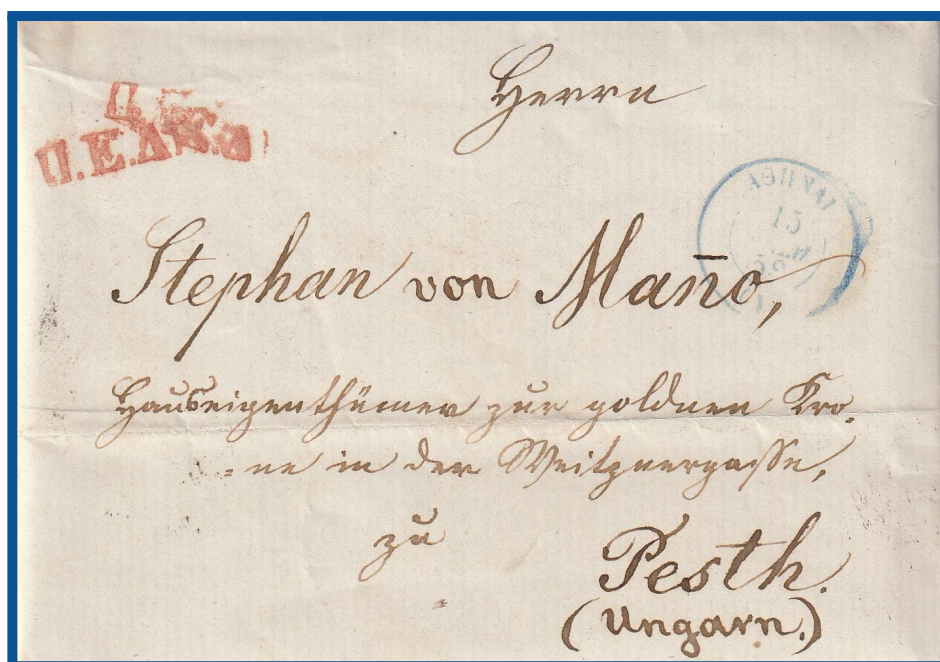 Herrn
Π.Ε.Δ
ΑΘΗΝΑΙ
15
Stephan von Mano,
Hauseigenthümer zur goldnen Kro-
=ne in der Weitznergasse,
zu
Pesth.
(Ungarn.)